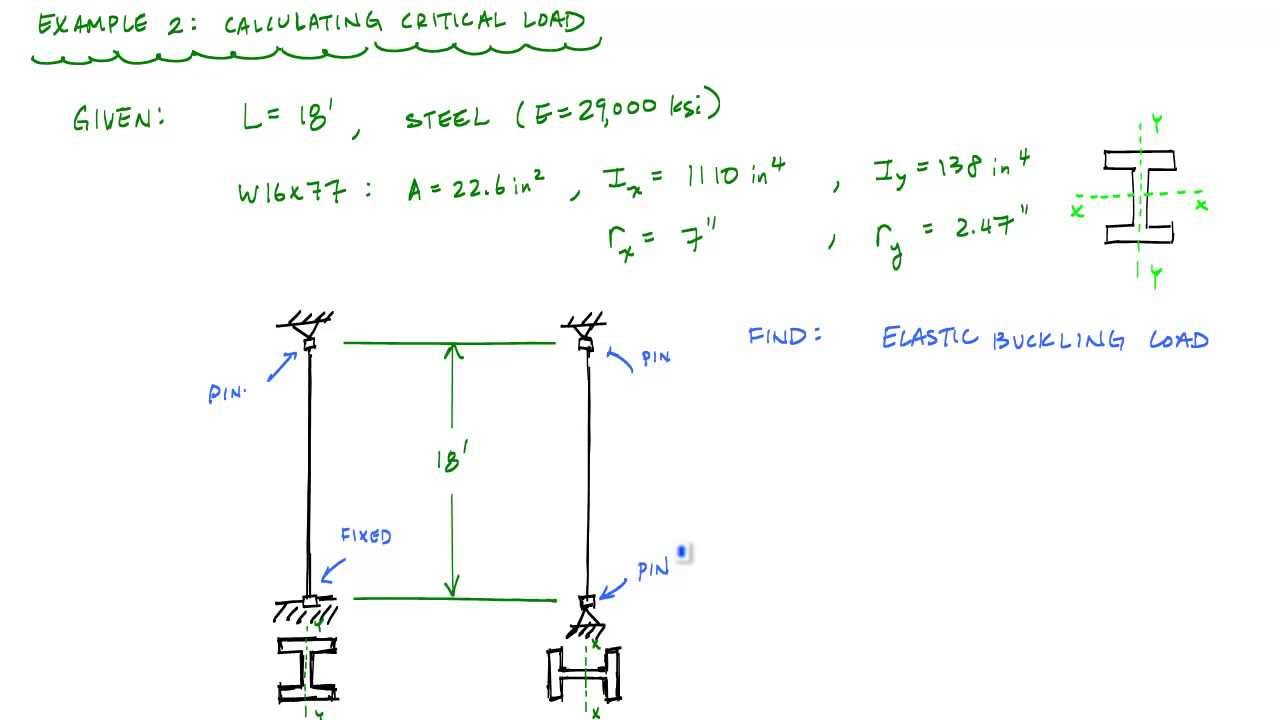 EXAMPLE 2: CALCULATING CRITICAL LOAD
GIVEN: L = 18', STEEL (E = 29,000 ksi)
W16x77 : A = 22.6 in², Ix = 1110 in⁴, Iy = 138 in⁴
rx = 7", ry = 2.47"
Y
X X
Y
FIND: ELASTIC BUCKLING LOAD
PIN
PIN.
18'
FIXED
PIN
Y
X
Y
X